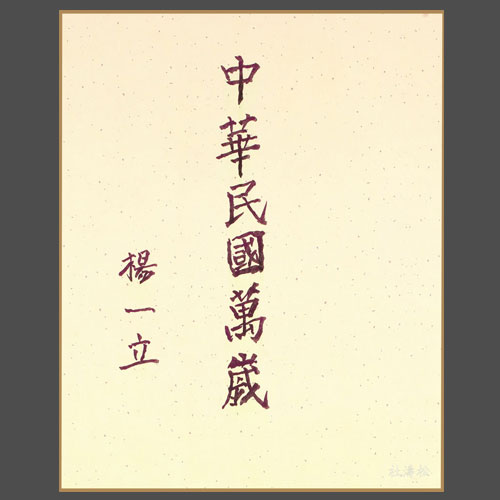 中華民國萬歲
楊一立
松濤社